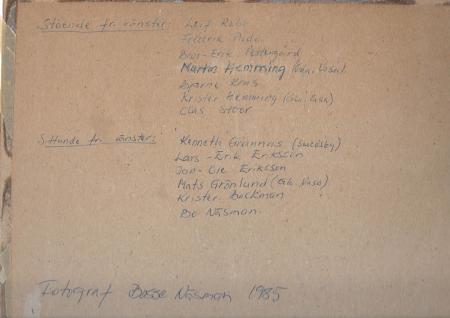 Stående fr. vänster: Leif Rabb
Fredrik
Bror-Erik
Martin Hemming
Bjarne
Krister Hemming (Gb. Vasa)
Clas Stoor
Sittande fr. vänster: Kenneth Grannas (Smedsby)
Lars-Erik Erikson
Jan-Ole Erikson
Mats Grönlund (Gb. Vasa)
Krister Backman
Bo Näsman.
Fotograf Bosse Näsman 1985